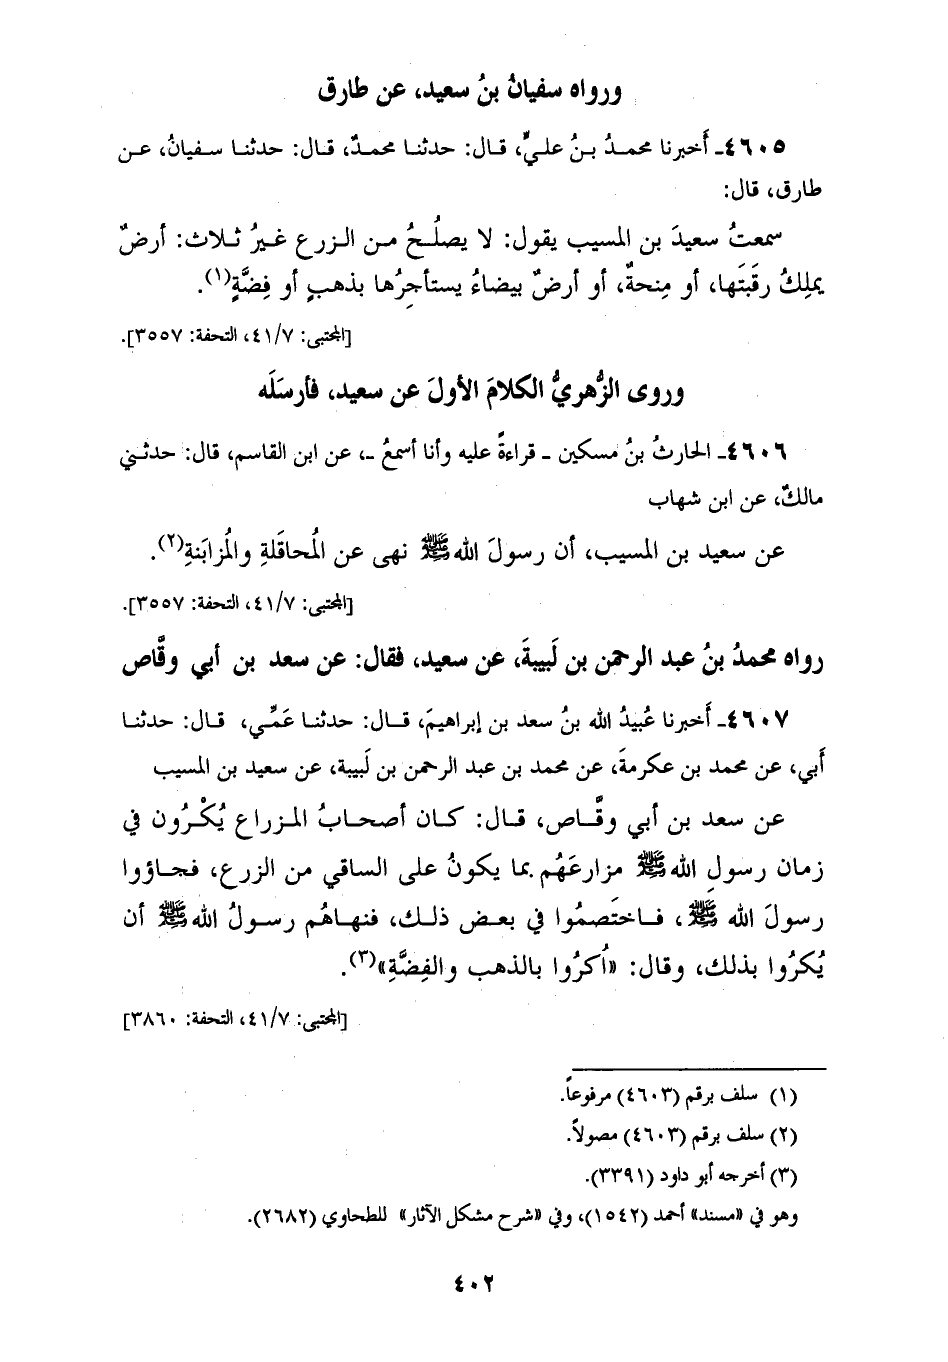 ورواه سفيانُ بنُ سعيد، عن طارق
٤٦٠٥ـ أَخبرنا محمدُ بنُ عليٍّ، قال: حدثنا محمدٌ، قال: حدثنا سفيانُ، عن
طارق، قال:
سمعتُ سعيدَ بن المسيب يقول: لا يصلُحُ من الزرع غيرُ ثلاث: أرضٌ
يملِكُ رقَبَتَها، أو مِنحةٌ، أو أرضٌ بيضاءُ يستأجِرُها بذهبٍ أو فِضَّةٍ(١).
[المجتبى: ٤١/٧، التحفة: ٣٥٥٧].
وروى الزُّهريُّ الكلامَ الأولَ عن سعيد، فأرسَلَه
٤٦٠٦ـ الحارثُ بنُ مسكين ـ قراءةً عليه وأنا أسمعُ ـ، عن ابن القاسم، قال: حدثني
مالكٌ، عن ابن شهاب
عن سعيد بن المسيب، أن رسولَ الله ﷺ نهى عن المُحاقَلةِ والمُزابَنةِ(٢).
[المجتبى: ٤١/٧، التحفة: ٣٥٥٧].
رواه محمدُ بنُ عبد الرحمن بن لَبيبةَ، عن سعيد، فقال: عن سعد بن أبي وقَّاص
٤٦٠٧ـ أَخبرنا عُبيدُ الله بنُ سعد بن إبراهيمَ، قال: حدثنا عَمِّي، قال: حدثنا
أَبي، عن محمد بن عكرمةَ، عن محمد بن عبد الرحمن بن لَبيبة، عن سعيد بن المسيب
عن سعد بن أبي وقَّاص، قال: كان أصحابُ المزراع يُكْرُون في
زمان رسولِ الله ﷺ مزارعَهُم بما يكونُ على الساقي من الزرع، فجاؤوا
رسولَ الله ﷺ، فاختَصمُوا في بعض ذلك، فنهاهُم رسولُ الله ﷺ أن
يُكرُوا بذلك، وقال: «أَكرُوا بالذهب والفِضَّةِ»(٣).
[المجتبى: ٤١/٧، التحفة: ٣٨٦٠]
(١) سلف برقم (٤٦٠٣) مرفوعاً.
(٢) سلف برقم (٤٦٠٣) مصولاً.
(٣) أخرجه أبو داود (٣٣٩١).
وهو في «مسند» أحمد (١٥٤٢)، وفي «شرح مشكل الآثار» للطحاوي (٢٦٨٢).
٤٠٢